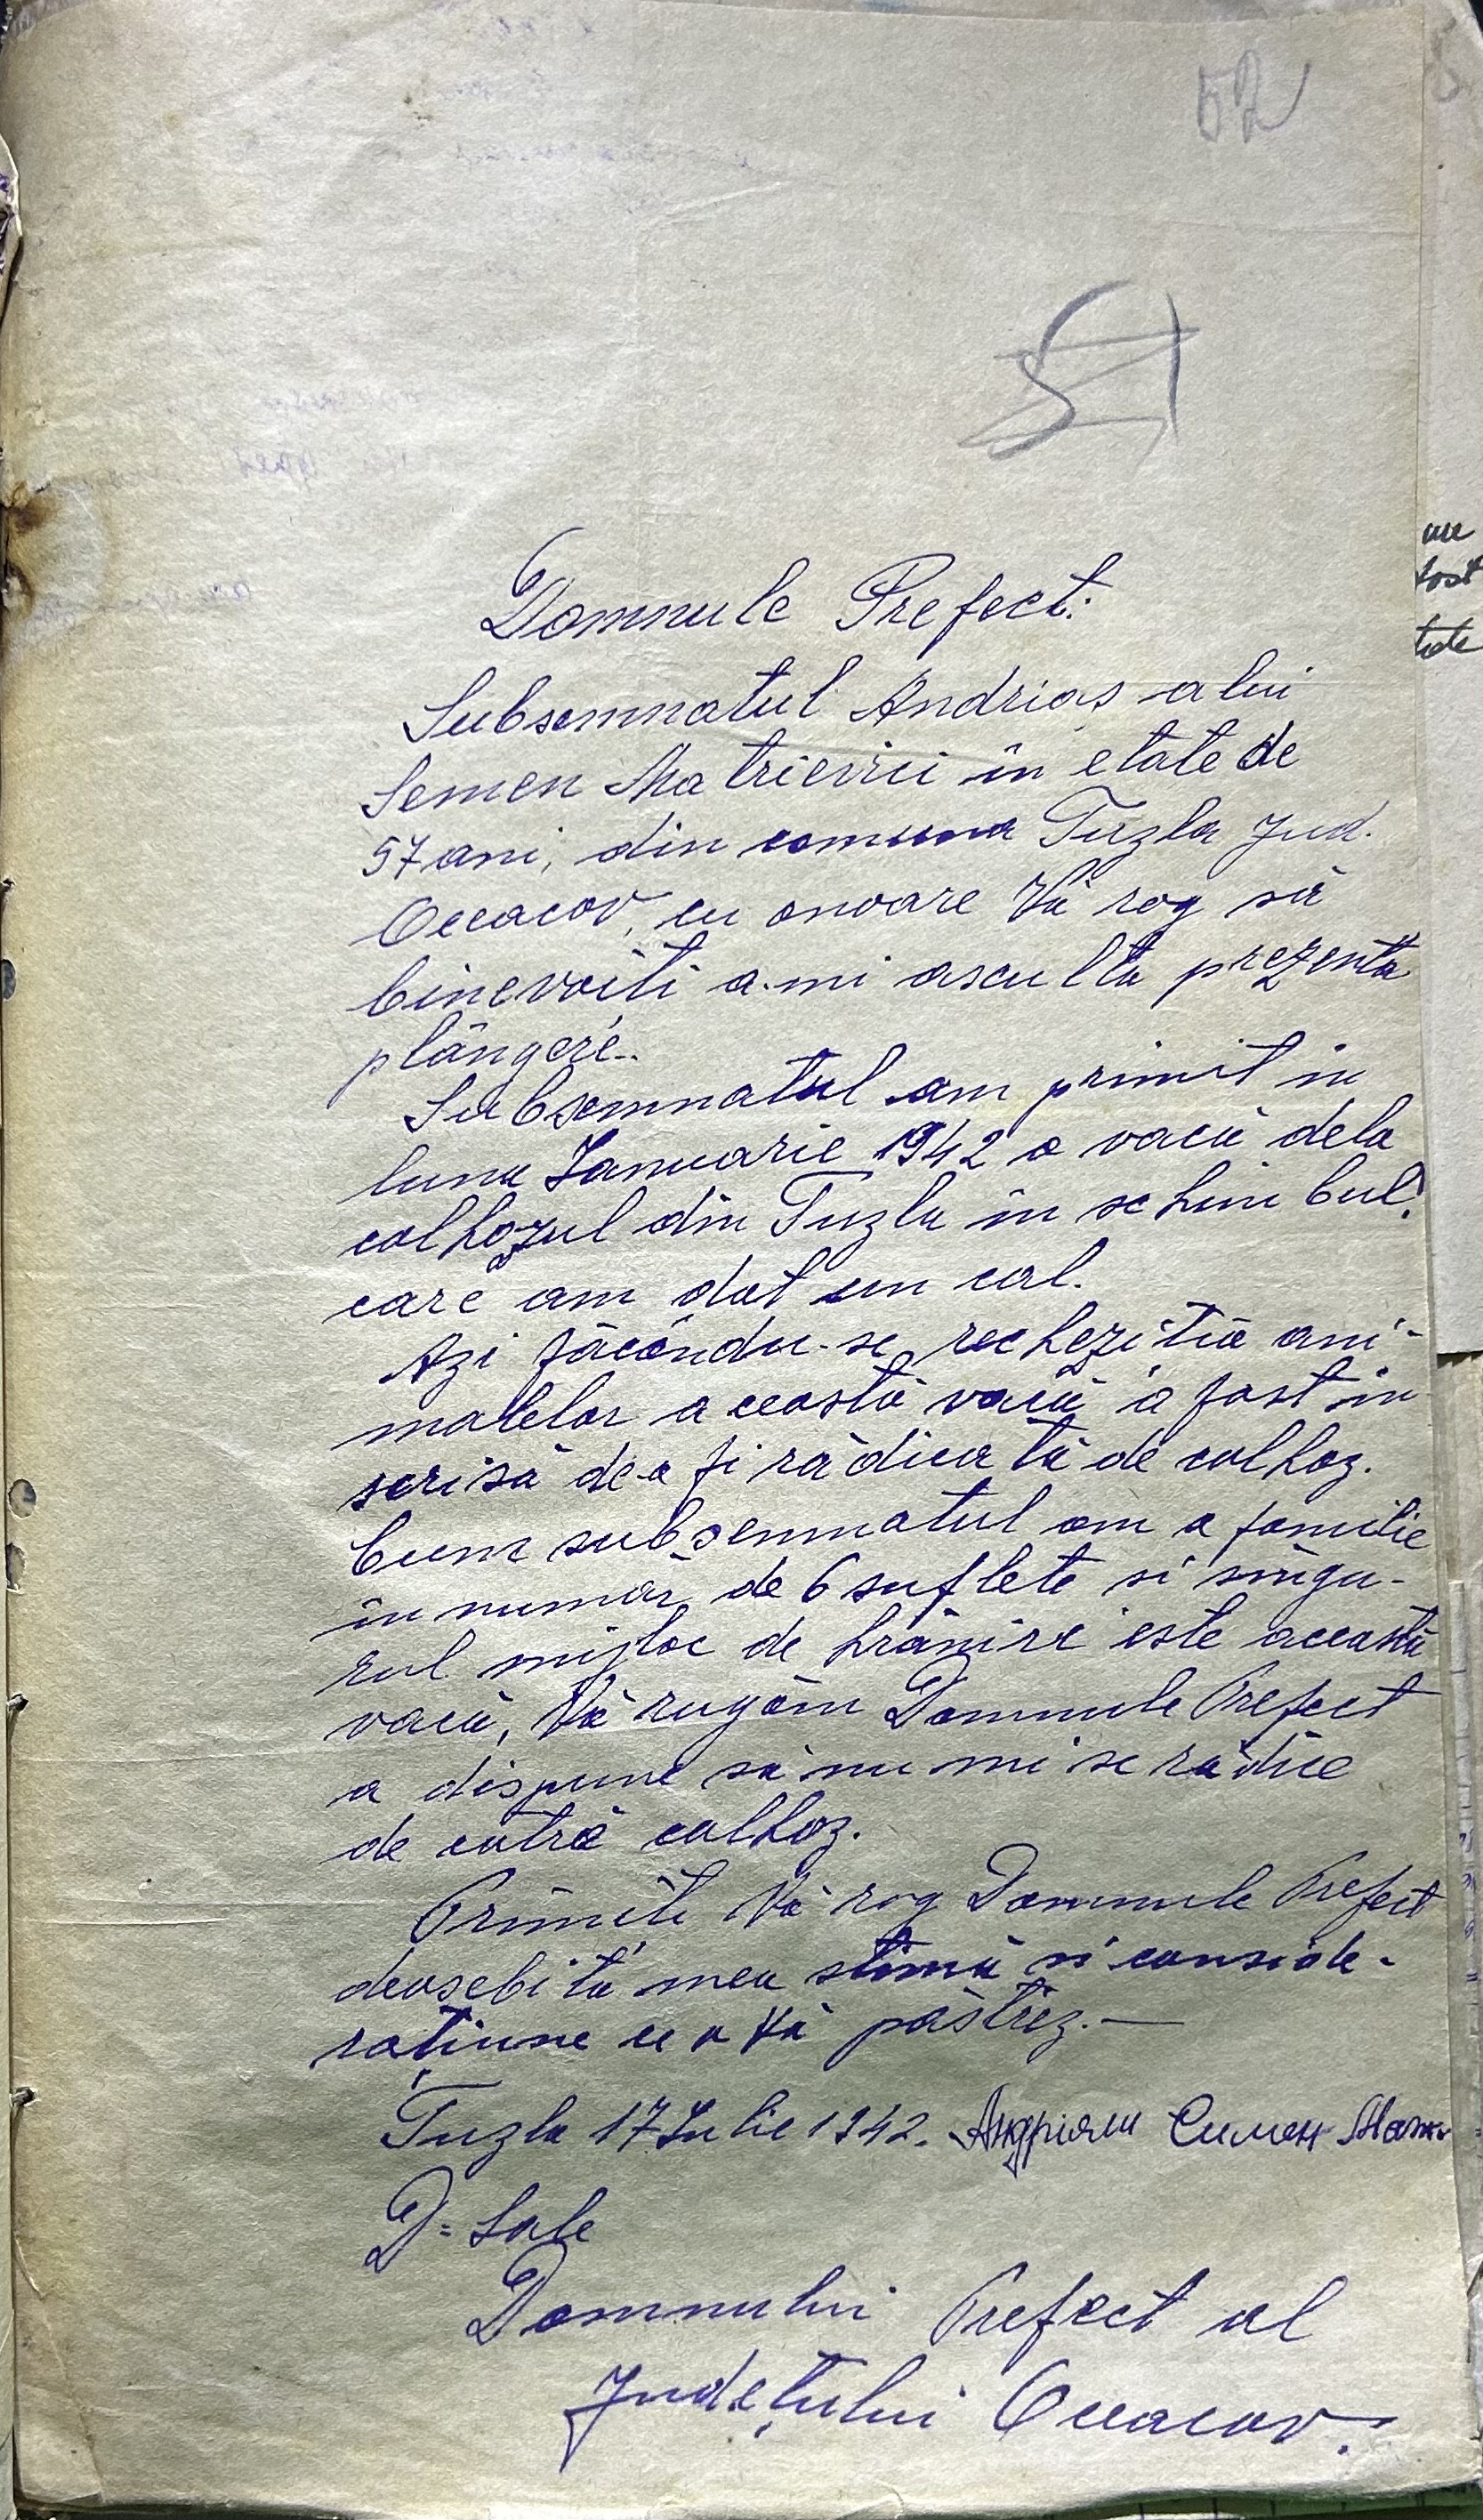 52
51
Domnule Prefect:
Subsemnatul Andriaș a lui
Semen Matrievici în etate de
57 ani, din comuna Tuzla Jud.
Oceacov, cu onoare Vă rog să
binevoiti a-mi asculta prezenta
plângere.
Subsemnatul am primit in
luna Ianuarie 1942 o vacă dela
colhozul din Tuzla în schimbul
care am dat un cal.
Azi făcându-se rechezitia ani-
malelor această vacă a fost in
scrisă de-a fi rădicată de colhoz.
Cum subsemnatul am o familie
în număr de 6 suflete si singu-
rul mijloc de hrănire este această
vacă, Vă rugăm Domnule Prefect
a dispune să nu mi se rădice
de cotră colhoz.
Primiti Vă rog Domnule Prefect
deosebita mea stimă si conside-
rațiune ce o Vă păstrez.—
Tuzla 17 Iulie 1942. Андріяш Симен
D-Sale
Domnului Prefect al
Județului Oceacov.